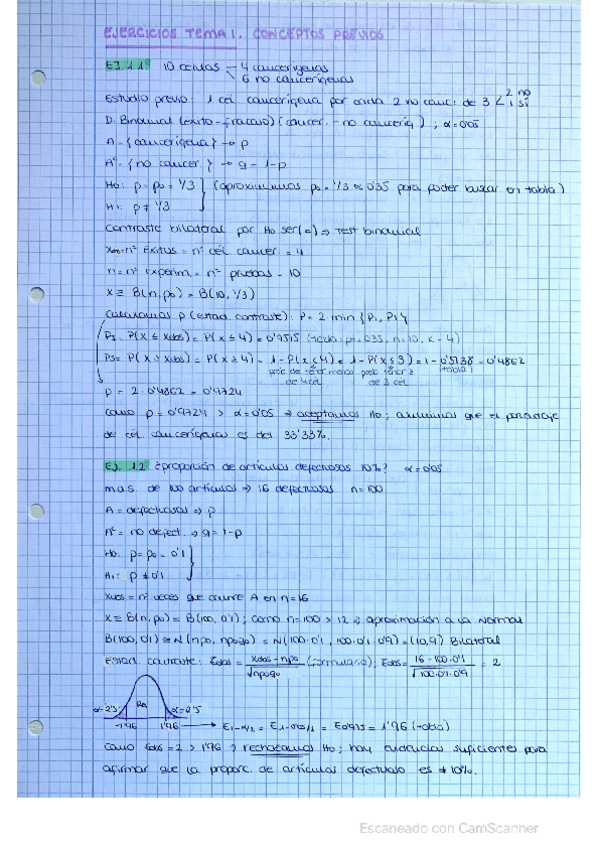 EJERCICIOS TEMA 1. CONCEPTOS PREVIOS
EJ 1.1º 10 células 4 cancerígenas
6 no cancerígenas
Estudio previo: 1 cél. cancerígena por cada 2 no canc. de 3 < 2 no
1 sí
D. Binomial (éxito-fracaso) (cancer. - no canceríg); α=0'05
A = {cancerígena} → p
Aᶜ = {no cancer.} → q = 1-p
H0: p = p0 = 1/3 (aproximamos p0 = 1/3 ≈ 0'35 para poder buscar en tabla)
H1: p ≠ 1/3
Contraste bilateral por H0 ser (=) ⇒ Test binomial
Xobs = nº éxitos = nº cél cancer = 4
n = nº experim. = nº pruebas = 10
X ≡ B(n, p0) = B(10, 1/3)
Calculamos p (estad. contraste): P = 2 · min {P1, Ps}
P1 = P(X ≤ xobs) = P(X ≤ 4) = 0'7515 (tabla: p = 0'35, n = 10, k = 4)
Ps = P(X ≥ xobs) = P(X ≥ 4) = 1 - P(X < 4) = 1 - P(X ≤ 3) = 1 - 0'5138 = 0'4862
(tabla)
de 4 cél de 3 cél
p = 2 · 0'4862 = 0'9724
Como p = 0'9724 > α = 0'05 ⇒ aceptamos H0; asumimos que el porcentaje
de cél cancerígenas es del 33'33%.
EJ. 1.2. ¿proporción de artículos defectuosos 10%? α=0'05
m.a.s. de 100 artículos ⇒ 16 defectuosos n=100
A = defectuosos ⇒ p
Aᶜ = no defect. ⇒ q = 1-p
H0: p = p0 = 0'1
H1: p ≠ 0'1
Xobs = nº veces que ocurre A en n = 16
X ≡ B(n, p0) = B(100, 0'1); como n = 100 > 12 ⇒ aproximación a la Normal
B(100, 0'1) ≅ N(np0, np0q0) = N(100·0'1, 100·0'1·0'9) = (10, 9) Bilateral
Estad. contraste: Eobs = xobs - np0 / √np0q0 (formulario); Eobs = 16 - 100·0'1 / √100·0'1·0'9 = 2
α=2'5 RA α=2'5
-1'96 1'96 → E1-α/2 = E1-0'05/2 = E0'975 = 1'96 (tabla)
Como Eobs = 2 > 1'96 ⇒ rechazamos H0; hay evidencias suficientes para
afirmar que la proporc. de artículos defectuoso es ≠ 10%.
Escaneado con CamScanner